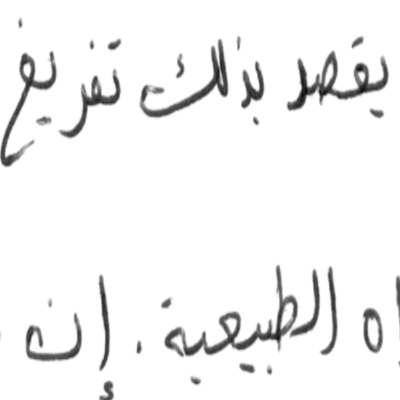 يقصد بذلك تفريغ
اه الطبيعية. إن